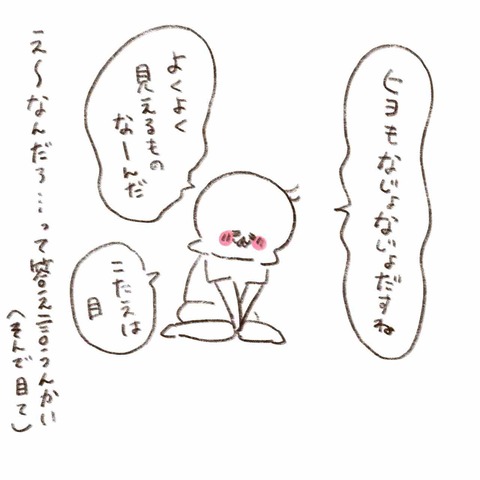 ヒヨもなじょないじょだすね
よくよく
見えるもの
なーんだ
こたえは
目
え〜なんだろ…って答え言うんかい
(そんで目て)